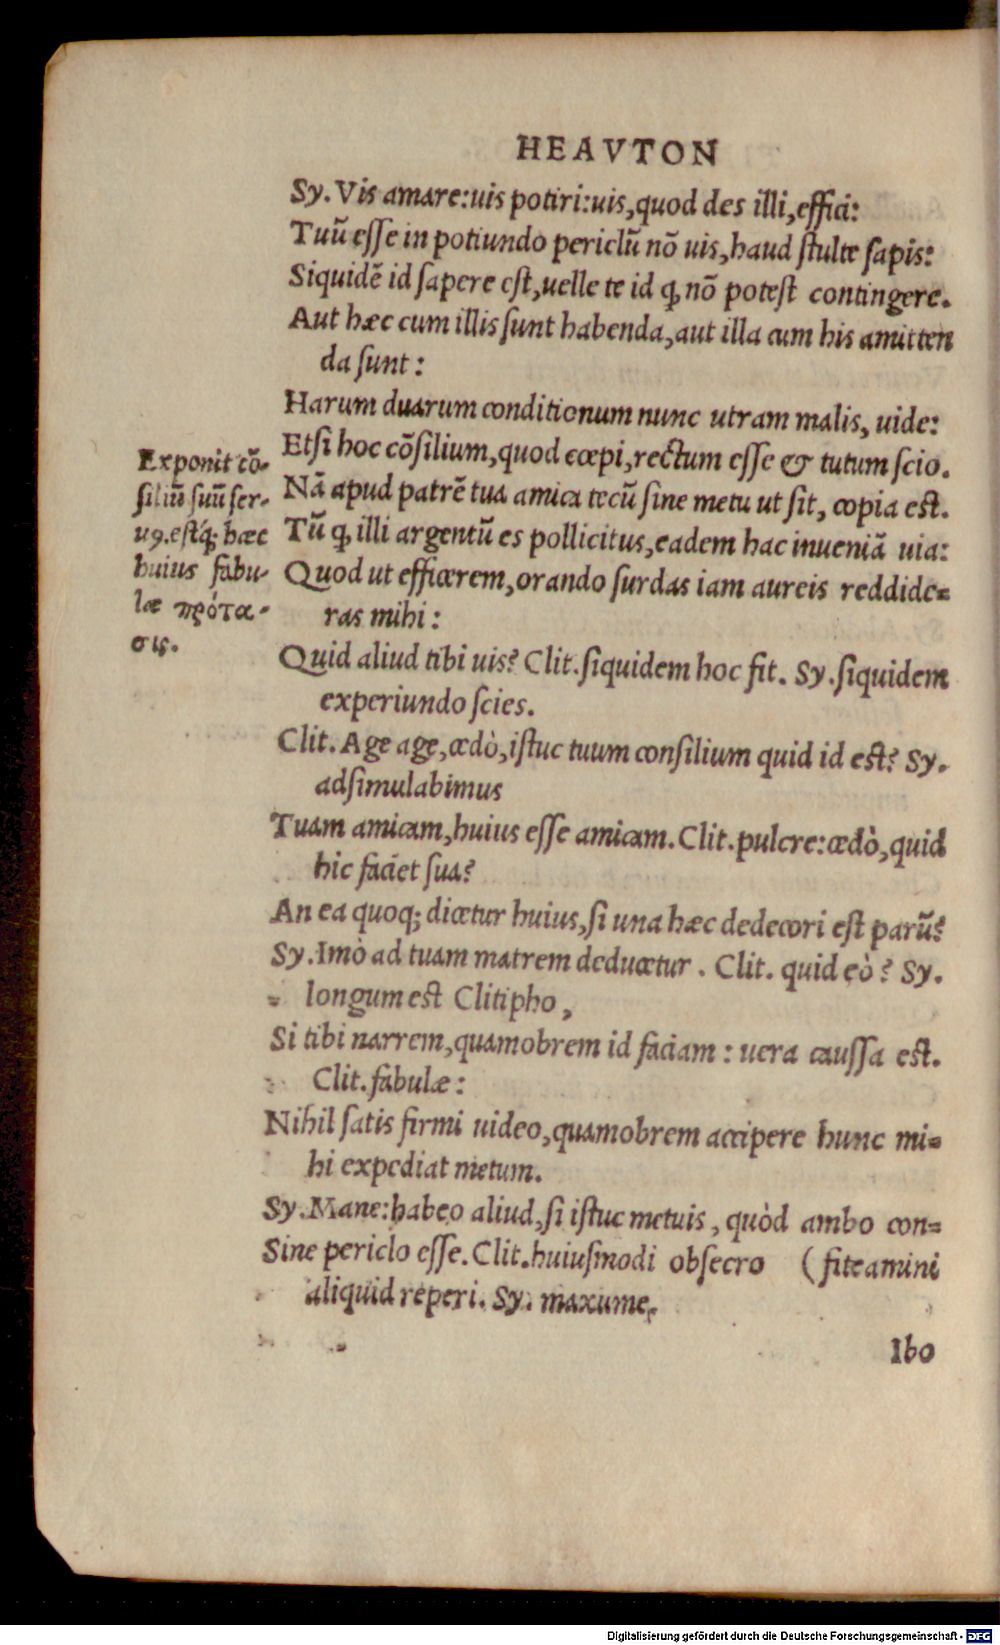 HEAVTON
Sy. Vis amare: uis potiri: uis, quod des illi, effici:
Tuū eſſe in potiundo periclū nō uis, haud ſtulte ſapis:
Siquidē id ſapere eſt, uelle te id ꝙ nō poteſt contingere.
Aut hæc cum illis ſunt habenda, aut illa cum his amitten
da ſunt:
Harum duarum conditionum nunc utram malis, uide:
Etſi hoc cōſilium, quod cœpi, rectum eſſe & tutum ſcio.
Nā apud patrē tua amica tecū ſine metu ut ſit, copia eſt.
Tū ꝙ illi argentū es pollicitus, eadem hac inueniā uia:
Quod ut efficerem, orando ſurdas iam aureis reddide-
ras mihi:
Quid aliud tibi uis? Clit. ſiquidem hoc fit. Sy. ſiquidem
experiundo ſcies.
Clit. Age age, cedò, iſtuc tuum conſilium quid id eſt? Sy.
adſimulabimus
Tuam amicam, huius eſſe amicam. Clit. pulcre: cedò, quid
hic faciet ſua?
An ea quoq; dicetur huius, ſi una hæc dedecori eſt parū?
Sy. Imò ad tuam matrem deducetur. Clit. quid eò? Sy.
longum eſt Clitipho,
Si tibi narrem, quamobrem id faciam: uera cauſſa eſt.
Clit. fabulæ:
Nihil ſatis firmi uideo, quamobrem accipere hunc mi-
hi expediat metum.
Sy. Mane: habeo aliud, ſi iſtuc metuis, quòd ambo con-
Sine periclo eſſe. Clit. huiuſmodi obſecro (fiteamini
aliquid reperi. Sy. maxume,
Ibo
Exponit cō-
ſiliū ſuū ſer-
uꝰ. eſtq́; hæc
huius fabu-
læ πρότα-
σις.
Digitalisierung gefördert durch die Deutsche Forschungsgemeinschaft - DFG